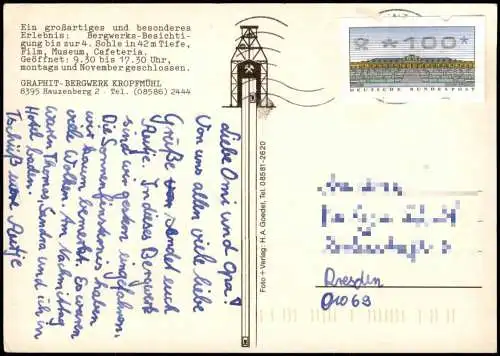 Ein großartiges und besonderes
Erlebnis: Bergwerks-Besichti-
gung bis zur 4. Sohle in 42 m Tiefe,
Film, Museum, Cafeteria.
Geöffnet: 9.30 bis 17.30 Uhr,
montags und November geschlossen.
GRAPHIT-BERGWERK KROPFMÜHL
8395 Hauzenberg 2 · Tel. (08586) 2444
*100*
DEUTSCHE BUNDESPOST
Liebe Omi und Opa!
Von uns allen viele liebe
Grüße sendet euch
Antje. In dieses Bergwerk
sind wir gestern eingefahren.
Die Sonnenfinsternis haben
wir kaum bemerkt. Es waren
viele Wolken. Am Nachmittag
waren Thomas, Sandra und ich im
Hotel baden.
Tschüß eure Antje
Foto + Verlag: H. A. Goedel, Tel. 08581-2620
Dresden
01069